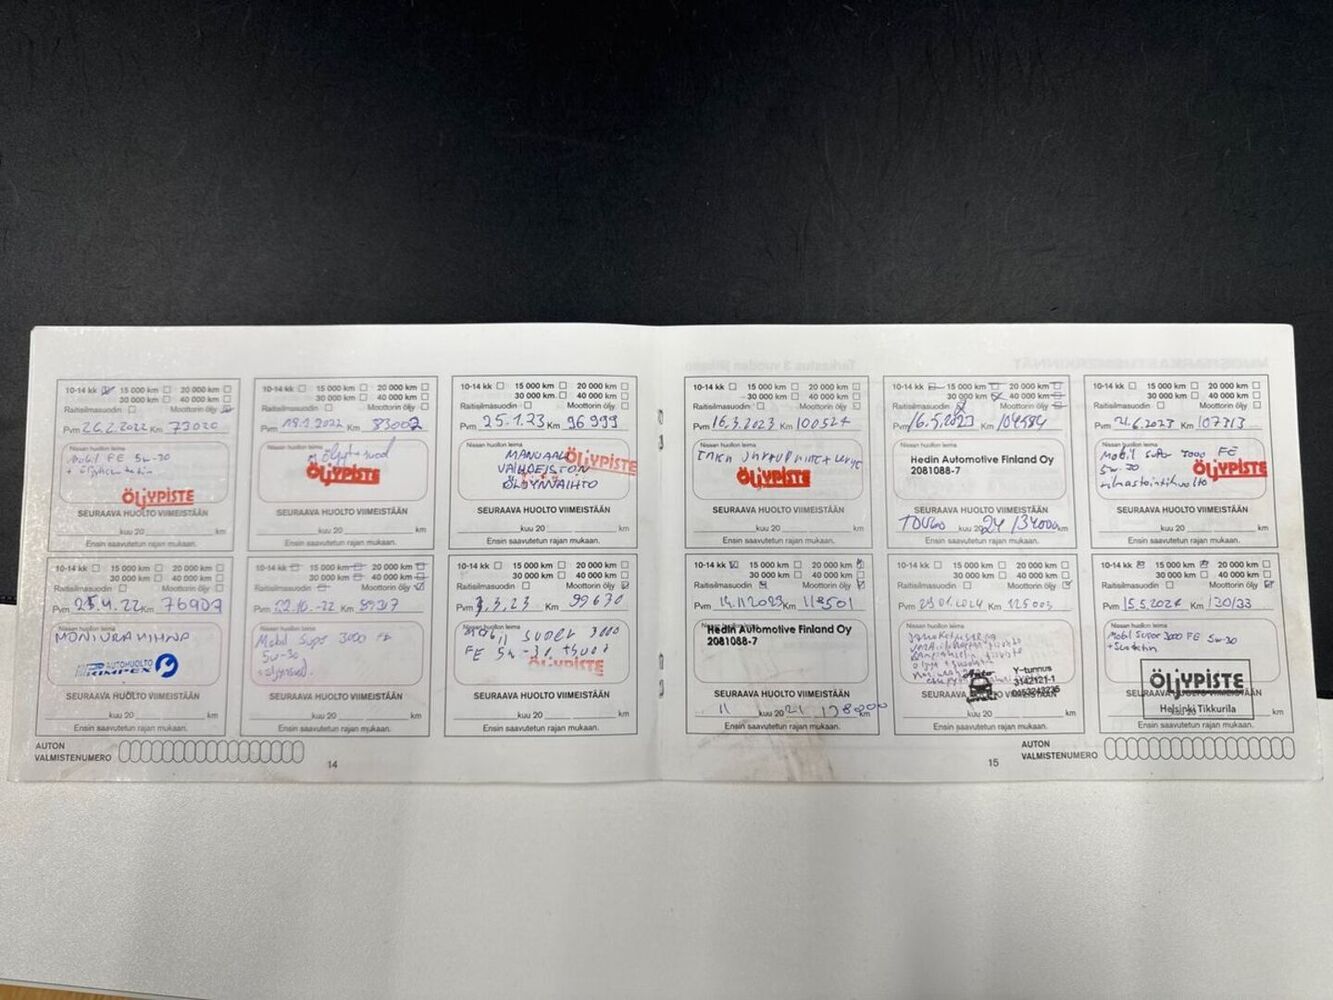 10-14 kk 15 000 km 20 000 km
30 000 km 40 000 km
Raitisilmasuodin Moottorin öljy
Pvm 26.2.2022 Km 73020
Nissan huollon leima
Mobil FE 5w-30
ÖLJYPISTE
SEURAAVA HUOLTO VIIMEISTÄÄN
kuu 20 km
Ensin saavutetun rajan mukaan.
10-14 kk 15 000 km 20 000 km
30 000 km 40 000 km
Raitisilmasuodin Moottorin öljy
Pvm 2022 Km 83007
Nissan huollon leima
ÖLJYPISTE
SEURAAVA HUOLTO VIIMEISTÄÄN
kuu 20 km
Ensin saavutetun rajan mukaan.
10-14 kk 15 000 km 20 000 km
30 000 km 40 000 km
Raitisilmasuodin Moottorin öljy
Pvm 25.1.23 Km 96999
Nissan huollon leima
MANUAALI ÖLJYPISTE
VAIHDEISTON
ÖLJYNVAIHTO
SEURAAVA HUOLTO VIIMEISTÄÄN
kuu 20 km
Ensin saavutetun rajan mukaan.
10-14 kk 15 000 km 20 000 km
30 000 km 40 000 km
Raitisilmasuodin Moottorin öljy
Pvm 25.4.22 Km 76907
Nissan huollon leima
MONIURAHIHNA
AUTOHUOLTO
RIMPEX
SEURAAVA HUOLTO VIIMEISTÄÄN
kuu 20 km
Ensin saavutetun rajan mukaan.
10-14 kk 15 000 km 20 000 km
30 000 km 40 000 km
Raitisilmasuodin Moottorin öljy
Pvm 22.10.-22 Km
Nissan huollon leima
Mobil Super 3000 FE
5w-30
SEURAAVA HUOLTO VIIMEISTÄÄN
kuu 20 km
Ensin saavutetun rajan mukaan.
10-14 kk 15 000 km 20 000 km
30 000 km 40 000 km
Raitisilmasuodin Moottorin öljy
Pvm 3.3.23 Km 99630
Nissan huollon leima
Mobil super 3000
FE 5w-30 +suod
ÖLJYPISTE
SEURAAVA HUOLTO VIIMEISTÄÄN
kuu 20 km
Ensin saavutetun rajan mukaan.
AUTON
VALMISTENUMERO
14
10-14 kk 15 000 km 20 000 km
30 000 km 40 000 km
Raitisilmasuodin Moottorin öljy
Pvm 16.3.2023 Km 100527
Nissan huollon leima
ÖLJYPISTE
SEURAAVA HUOLTO VIIMEISTÄÄN
kuu 20 km
Ensin saavutetun rajan mukaan.
10-14 kk 15 000 km 20 000 km
30 000 km 40 000 km
Raitisilmasuodin Moottorin öljy
Pvm 16.5.2023 Km 104984
Nissan huollon leima
Hedin Automotive Finland Oy
2081088-7
SEURAAVA HUOLTO VIIMEISTÄÄN
kuu 2024 /134000 km
Ensin saavutetun rajan mukaan.
10-14 kk 15 000 km 20 000 km
30 000 km 40 000 km
Raitisilmasuodin Moottorin öljy
Pvm 21.6.2023 Km 107313
Nissan huollon leima
Mobil Super 3000 FE
5w-30 ÖLJYPISTE
+ilmastointihuolto
SEURAAVA HUOLTO VIIMEISTÄÄN
kuu 20 km
Ensin saavutetun rajan mukaan.
10-14 kk 15 000 km 20 000 km
30 000 km 40 000 km
Raitisilmasuodin Moottorin öljy
Pvm 14.11.2023 Km 118501
Nissan huollon leima
Hedin Automotive Finland Oy
2081088-7
SEURAAVA HUOLTO VIIMEISTÄÄN
11 kuu 20 km
Ensin saavutetun rajan mukaan.
10-14 kk 15 000 km 20 000 km
30 000 km 40 000 km
Raitisilmasuodin Moottorin öljy
Pvm 29.01.2024 Km 125003
Nissan huollon leima
Y-tunnus
3142121-1
SEURAAVA HUOLTO VIIMEISTÄÄN
kuu 20 km
Ensin saavutetun rajan mukaan.
10-14 kk 15 000 km 20 000 km
30 000 km 40 000 km
Raitisilmasuodin Moottorin öljy
Pvm 15.5.2024 Km 130133
Nissan huollon leima
Mobil Super 3000 FE 5w-30
+Suodatin
ÖLJYPISTE
SEURAAVA HUOLTO VIIMEISTÄÄN
Helsinki Tikkurila
kuu 20 km
Ensin saavutetun rajan mukaan.
15
AUTON
VALMISTENUMERO